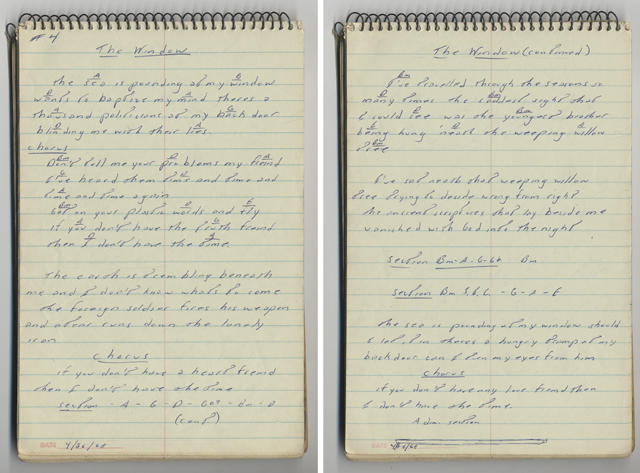 #4
The Window
The sea is pounding at my window
wants to baptize my mind theres a
thousand politicians at my back door
blinding me with their lies.
chorus
Don't tell me your problems my friend
I've heard them time and time and
time and time again
Get on your plastic words and fly
if you don't have the truth friend
then I don't have the time.
The earth is trembling beneath
me and I don't know whats to come
the foreign soldier fires his weapon
and a tear runs down the lonely
iron
chorus
if you don't have a heart friend
then I don't have the time
section - A - G - D - - Bm - A
(cont)
DATE 4/26/68
The Window (continued)
I've travelled through the seasons so
many times the saddest sight that
I could see was the youngest brother
being hung neath the weeping willow
tree
I've sat neath that weeping willow
tree trying to decide wrong from right
the ancient scriptures that lay beside me
vanished with God into the night
section Bm - A - G - Bm
section Bm - G - A - E
the sea is pounding at my window should
I let it in theres a hungry tramp at my
back door can I turn my eyes from him
Chorus
if you don't have any love friend then
I don't have the time.
A dim. section
DATE